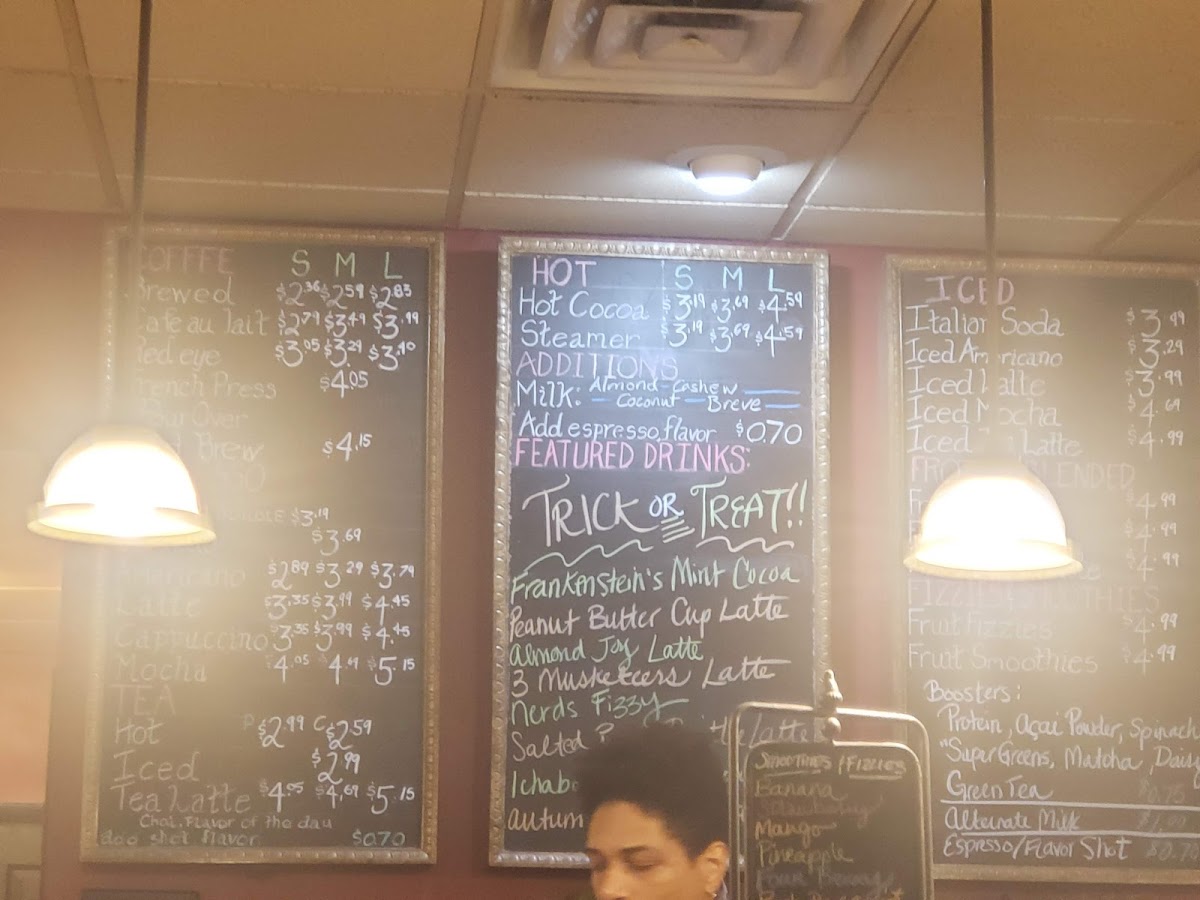 S M L
Brewed $2.36 $2.59 $2.83
Cafe au lait $2.79 $3.49 $3.99
Red eye $3.05 $3.29 $3.40
French Press $4.05
Over
Brew $4.15
$3.19
$3.69
Americano $2.89 $3.29 $3.79
Latte $3.35 $3.99 $4.45
Cappuccino $3.35 $3.99 $4.45
Mocha $4.05 $4.69 $5.15
TEA
Hot P $2.99 C $2.59
Iced $2.99
Tea Latte $4.05 $4.69 $5.15
Chai, Flavor of the day
flavor $0.70
HOT S M L
Hot Cocoa $3.19 $3.69 $4.59
Steamer $3.19 $3.69 $4.59
ADDITIONS
Milk: Almond - Cashew
Coconut - Breve
Add espresso, flavor $0.70
FEATURED DRINKS:
TRICK OR TREAT!!
Frankenstein's Mint Cocoa
Peanut Butter Cup Latte
Almond Joy Latte
3 Musketeers Latte
Nerds Fizzy
Salted
Latte
Ichab
autum
SMOOTHIES / FIZZIES
Banana
Strawberry
Mango
Pineapple
ICED
Italian Soda $3.99
Iced Americano $3.29
Iced Latte $3.99
Iced Mocha $4.69
Iced Latte $4.99
$4.99
$4.99
$4.99
Fruit Fizzies $4.99
Fruit Smoothies $4.99
Boosters:
Protein, Açai Powder, Spinach
"Super Greens, Matcha, Daisy
Green Tea $0.75
Alternate Milk $1.00
Espresso/Flavor Shot $0.70